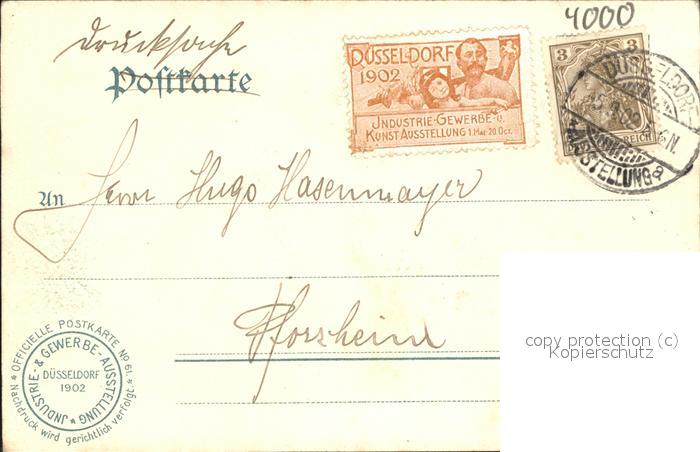 4000
Drucksache
Postkarte
DÜSSELDORF
1902
INDUSTRIE-GEWERBE-U.
KUNST AUSSTELLUNG 1. MAI-20. OCT.
3 3
REICH
DÜSSELDORF
AUSSTELLUNG a
An Herrn Hugo Hasenmayer
Pforzheim
OFFICIELLE POSTKARTE No 61.
Nachdruck wird gerichtlich verfolgt.
INDUSTRIE- & GEWERBE-AUSSTELLUNG
DÜSSELDORF
1902
copy protection (c)
Kopierschutz